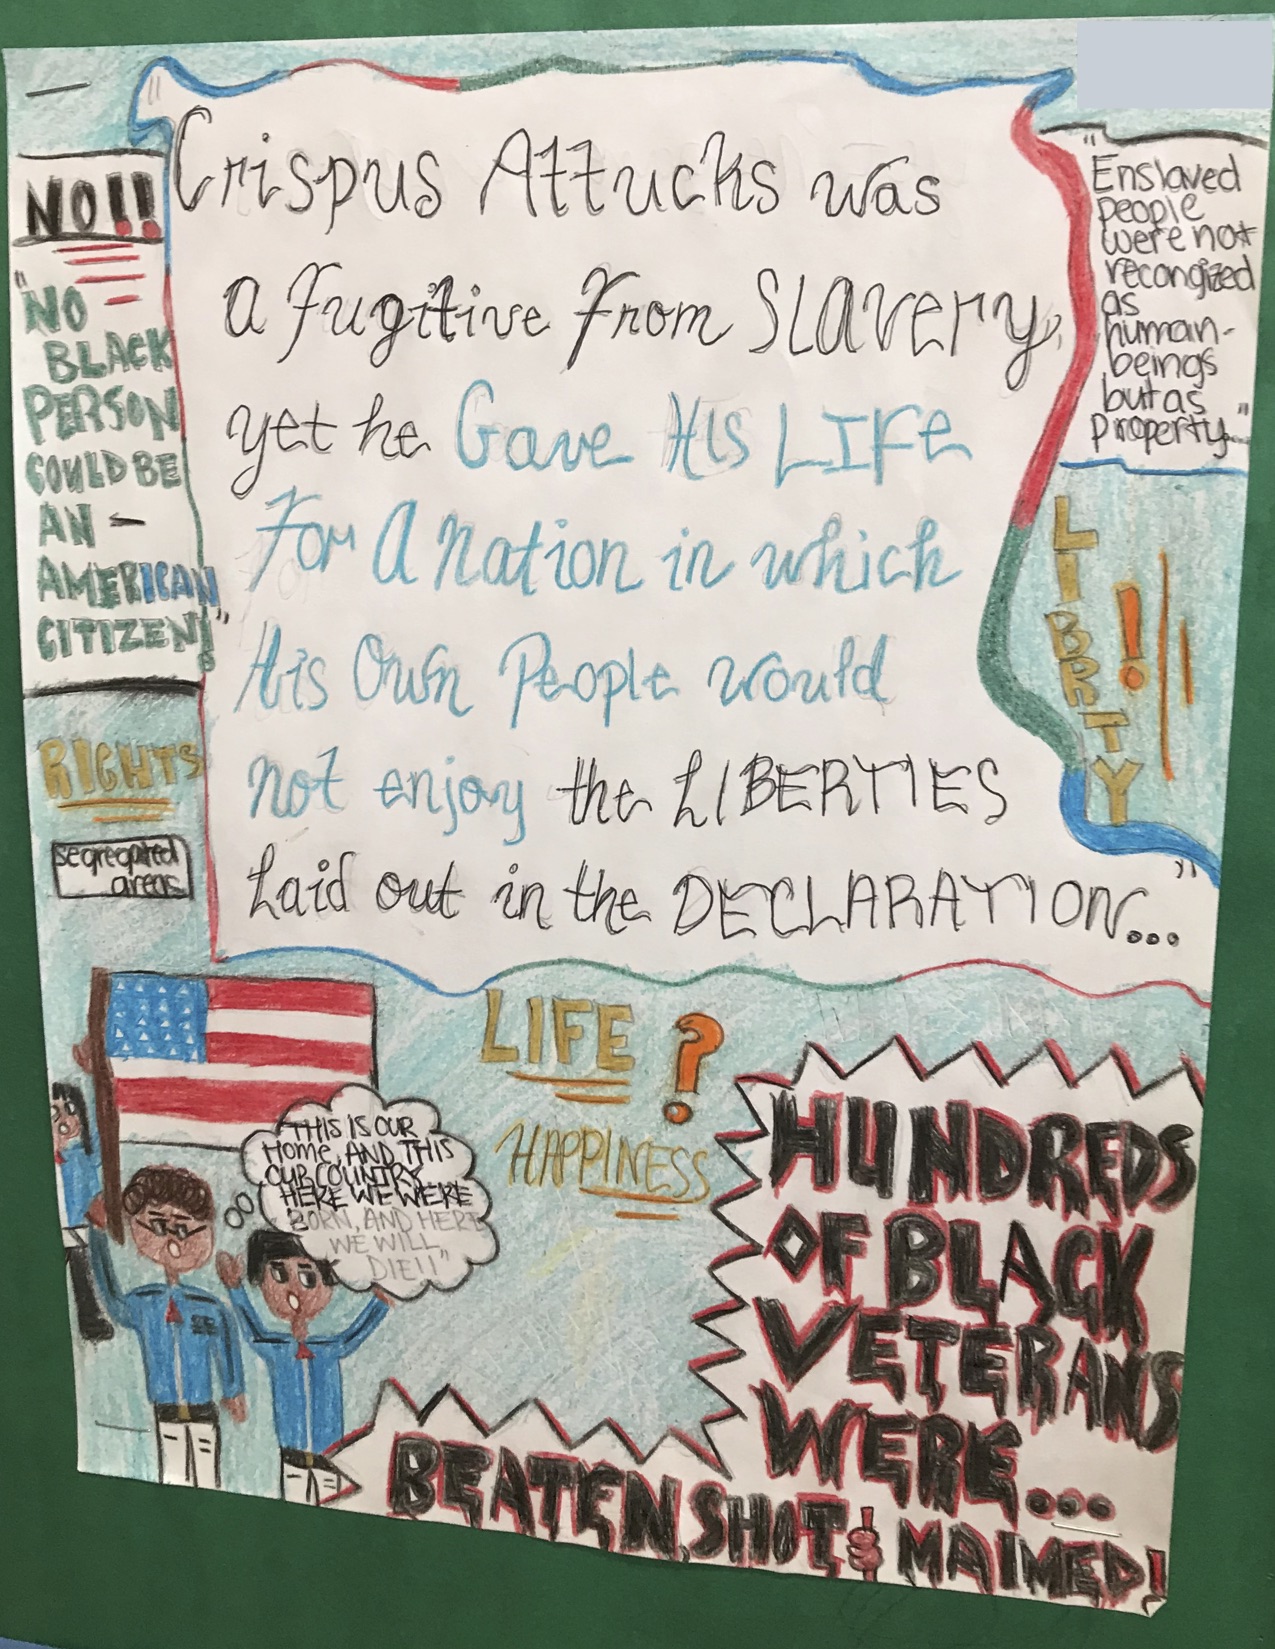 NO!!
"NO
BLACK
PERSON
COULD BE
AN -
AMERICAN
CITIZEN!"
RIGHTS
segregated
areas
"Crispus Attucks was
a fugitive from SLAVERY,
yet he Gave His LIFE
For A Nation in which
His Own People would
not enjoy the LIBERTIES
Laid out in the DECLARATION..."
"Enslaved
people
were not
recongized
as
human-
beings
but as
Property."
LIBRTY!
LIFE?
HAPPINESS
"THIS IS OUR
Home, AND THIS
OUR COUNTRY
HERE WE WERE
BORN, AND HERE
WE WILL
DIE!!"
HUNDREDS
OF BLACK
VETERANS
WERE...
BEATEN, SHOT & MAIMED!